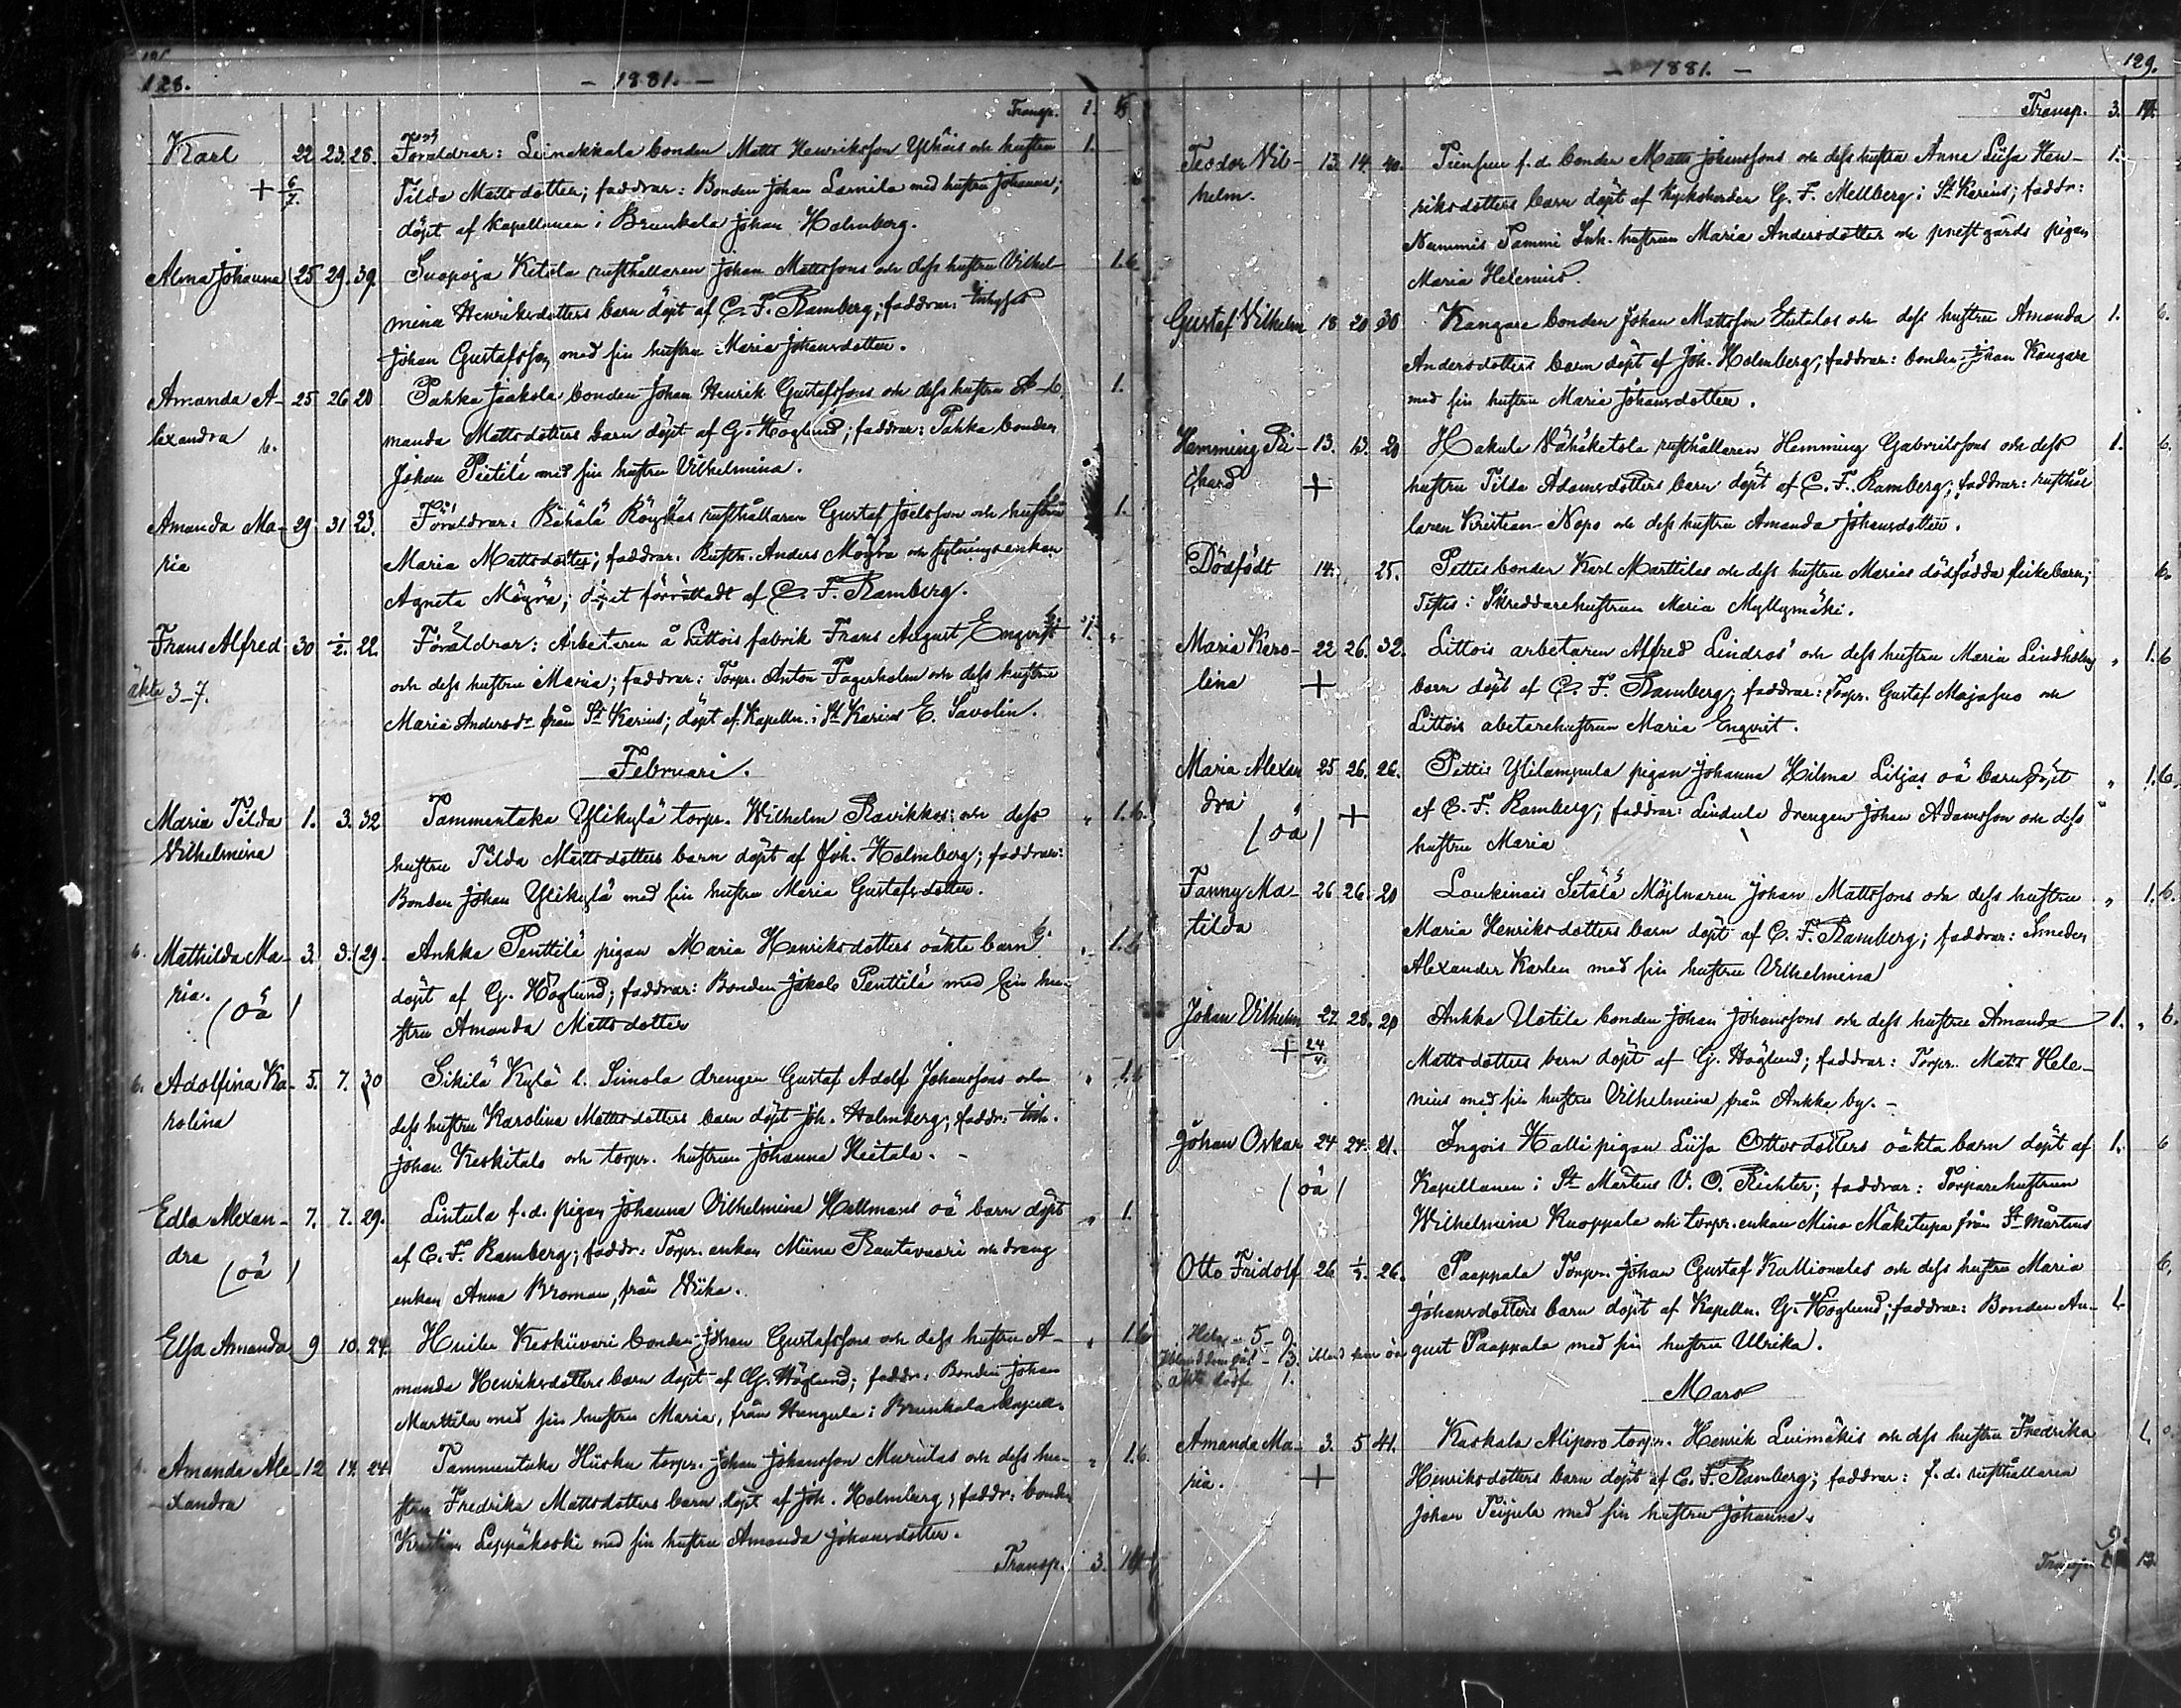 128.
- 1881. -
Transp. 1. 8
Karl 22 23. 28. Föräldrar: Leinakkala bonden Matts Henriksson Ylhäis och hustru 1.
+ 6/2. Tilda Mattsdotter; faddrar: Bonden Johan Lamila med hustru Johanna;
döpt af kapellanen i Brunkala Johan Holmberg.
Alma Johanna 25 29. 39. Suopoja Ketola rusthållaren Johan Mattssons och dess hustru Vilhel- 1.6.
mina Henriksdotters barn döpt af C. F. Ramberg; faddrar: Inhyses
Johan Gustafsson med sin hustru Maria Johansdotter.
Amanda A- 25 26 20 Pahka Jaakola bonden Johan Henrik Gustafssons och dess hustru A- 1.
lexandra 6. manda Mattsdotters barn döpt af G. Höglund; faddrar: Pahka bonden
Johan Pietilä med sin hustru Vilhelmina.
Amanda Ma- 29 31 23. Föräldrar: Kähälä Röykäs rusthållaren Gustaf Joelsson och hustru 1.
ria Maria Mattsdotter; faddrar: Rusth. Anders Möyrä och sytningsenkan
Agneta Möyrä; döpet förrättadt af C. F. Ramberg.
Frans Alfred 30 1/2. 22. Föräldrar: Arbetaren å Littois fabrik Frans August Enqvist 1.
äkta 3-7. och dess hustru Maria; faddrar: Torpr. Anton Fagerholm och dess hustru
Maria Andersdr från St Karins; döpt af Kapelln. i St Karins E. Savolin.
Februari.
Maria Tilda 1. 3. 32 Tammentaka Ylikylä torpr. Wilhelm Ravikkos och dess " 1.6.
Vilhelmina hustru Tilda Mattsdotters barn döpt af Joh. Holmberg; faddrar:
Bonden Johan Ylikylä med sin hustru Maria Gustafsdotter.
6. Mathilda Ma- 3. 3. 29. Ankka Penttilä pigan Maria Henriksdotters oäkta barn 1.6
ria. (oä) döpt af G. Höglund; faddrar: Bonden Jakob Penttilä med sin hu-
stru Amanda Mattsdotter
6. Adolfina Ka- 5. 7. 30 Sikilä Kylä l. Simola drengen Gustaf Adolf Johanssons och " 1.6
rolina dess hustru Karolina Mattsdotters barn döpt Joh. Holmberg; faddr: Inh.
Johan Keskitalo och torpr. hustrun Johanna Hietala. -
Edla Alexan- 7. 7. 29. Lintula f.d. pigan Johanna Vilhelmina Hallmans oä barn döpt " 1.
dra (oä) af C. F. Ramberg; faddr: Torpr. enkan Miina Rautavuori och dreng
enkan Anna Broman, från Wiika.
Elsa Amanda 9 10. 24. Huilu Keskiivari bonden Johan Gustafssons och dess hustru A- " 1.6
manda Henriksdotters barn döpt af G. Höglund; faddr: Bonden Johan
Marttila med sin hustru Maria, från Hangula i Brunkala kapell.
Amanda Ale- 12 14. 24 Tammentaka Hiiska torpr. Johan Johansson Murulas och dess hu- " 1.6.
xandra stru Fredrika Mattsdotters barn döpt af Joh. Holmberg; faddr: bonden
Kristian Leppäkoski med sin hustru Amanda Johansdotter.
Transp. 3. 14
129.
- 1881. -
Transp. 3. 14.
Teodor Vil- 13. 14. 40. f.d. bonden Matts Johanssons och dess hustru Anna Liisa Hen- 1.
helm. riksdotters barn döpt af Kyrkoherden G. F. Mellberg i St Karins; faddr:
Nummis Tammi Inh. hustrun Maria Andersdotter och prestgårds pigan
Maria Helenius.
Gustaf Vilhelm 18 20 30 Kangare bonden Johan Mattsson Etutalos och dess hustru Amanda 1. 6.
Andersdotters barn döpt af Joh. Holmberg; faddrar: bonden Johan Kangare
med sin hustru Maria Johansdotter.
Hemming Ri- 13. 13. 20 Hakula Vähäketola rusthållaren Hemming Gabrielssons och dess 1. 6.
chard + hustru Tilda Adamsdotters barn döpt af C. F. Ramberg; faddrar: rusthål
laren Kristian Nopo och dess hustru Amanda Johansdotter.
Dödfödt 14. 25. Pettis bonden Karl Marttilas och dess hustru Marias dödfödda flickebarn; 6.
Testis: Skreddarehustrun Maria Myllymäki.
Maria Karo- 22 26. 32. Littois arbetaren Alfred Lindros' och dess hustru Maria Lindholms " 1.6
lina + barn döpt af C. F. Ramberg; faddrar: Torpr. Gustaf Majasuo och
Littois abetarehustrun Maria Enqvist.
Maria Alexan 25 26. 26. Pettis Ylilampula pigan Johanna Hilma Liljas oä barn döpt " 1.6.
dra (oä) + af C. F. Ramberg; faddrar: Lindula drengen Johan Adamsson och dess
hustru Maria
Fanny Ma- 26 26. 20 Loukinais Setälä Mjölnaren Johan Mattssons och dess hustru " 1.6.
tilda Maria Henriksdotters barn döpt af C. F. Ramberg; faddrar: Smeden
Alexander Karlen med sin hustru Vilhelmina
Johan Vilhelm 27 28. 20 Ankka Uotila bonden Johan Johanssons och dess hustru Amanda 1. " 6.
+ 24/4. Mattsdotters barn döpt af G. Höglund; faddrar: Torpr. Matts Hele-
nius med sin hustru Vilhelmina från Ankka by. -
Johan Oskar 24 24. 21. Ingois Halli pigan Liisa Ottosdotters oäkta barn döpt af 1. 6
(oä) Kapellanen i St Mårtens V. O. Richter; faddrar: Torparehustrun
Wilhelmina Kuoppala och torpr. enkan Mina Mäkitupa från St Mårtens
Otto Fridolf 26 1/3. 26. Paappala Torpr. Johan Gustaf Kalliomalas och dess hustru Maria 6.
Johansdotters barn döpt af Kapelln. G. Höglund; faddrar: Bonden Au- 1.
gust Paappala med sin hustru Ulrika.
Mars
Amanda Ma- 3. 5 41. Kaskala Aliporo torpr. Henrik Luimäkis och dess hustru Fredrika 1.
ria. + Henriksdotters barn döpt af C. F. Ramberg; faddrar: f.d. rusthållaren
Johan Teijula med sin hustru Johanna.
Transp. 13.